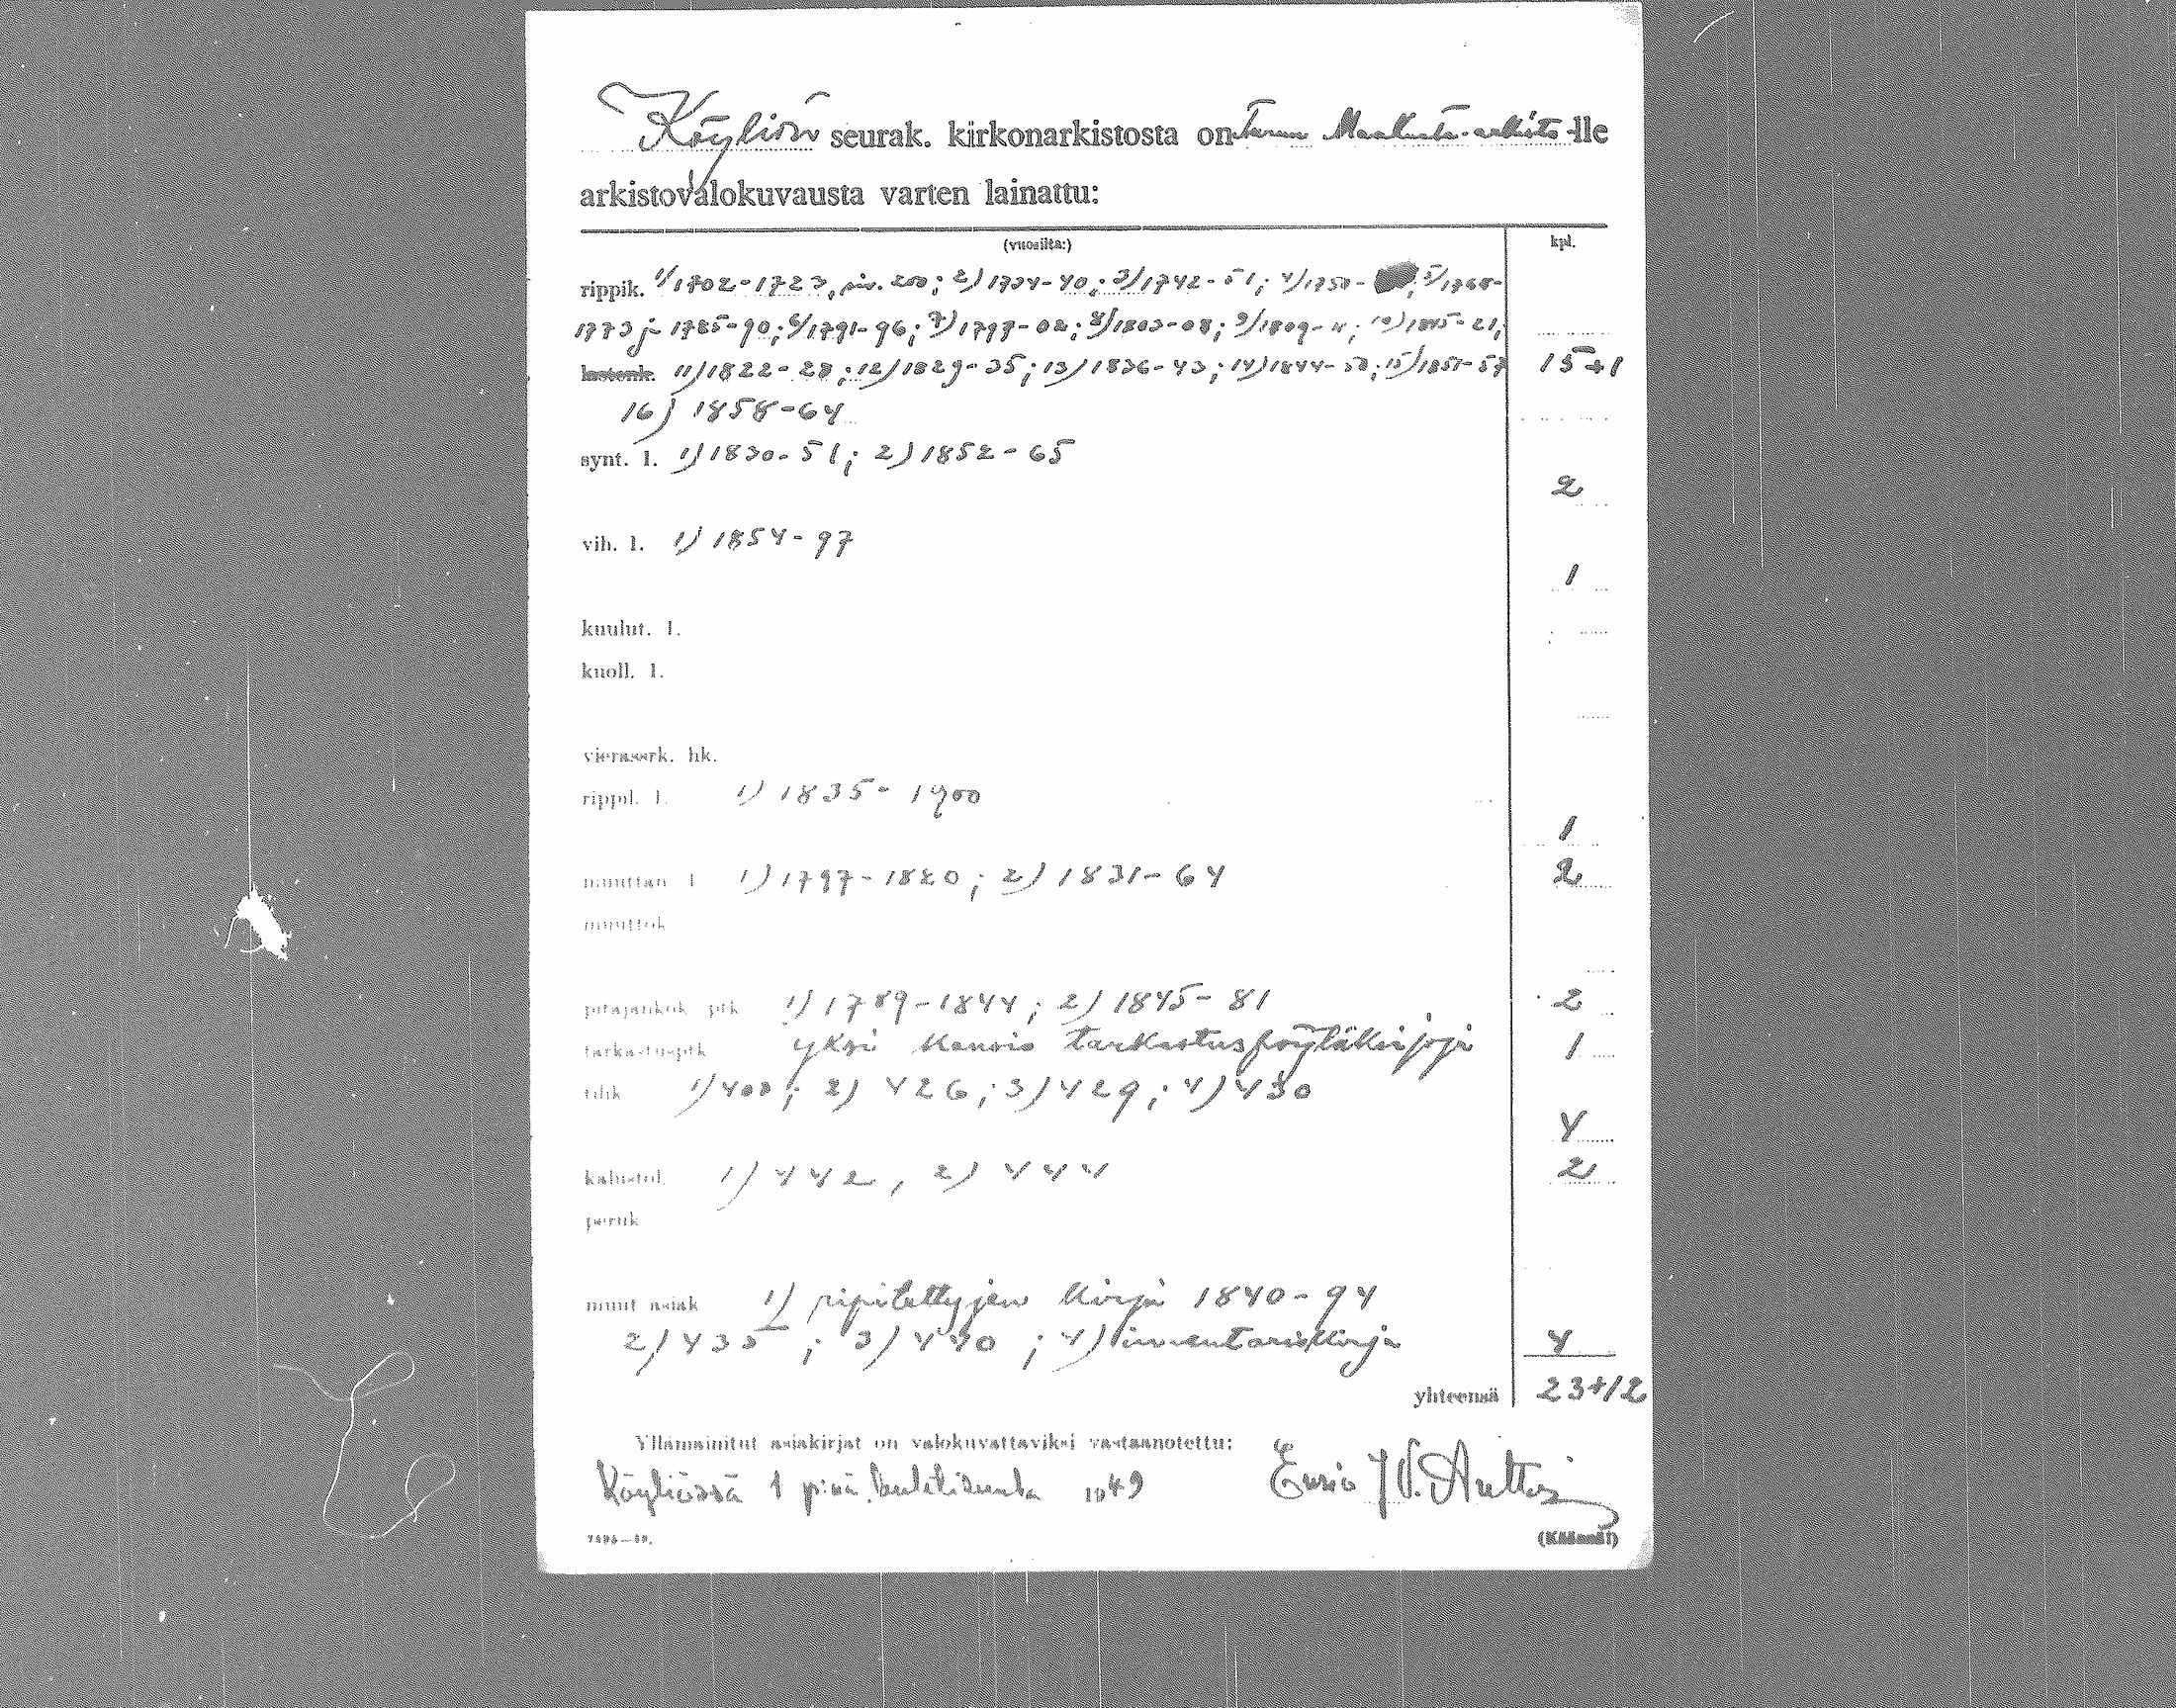 Köyliön seurak. kirkonarkistosta on Turun Maakunta-arkisto-lle
arkistovalokuvausta varten lainattu:
(vuosilta:) kpl.
rippik. 1/1702-1723, siv. 200; 2) 1734-40; 3/1742-51; 4/1750- ; 5/1768-
1773 ja 1785-90; 6/1791-96; 7) 1797-02; 8/1803-08; 9/1809-14; 10) 1815-21;
lastenk. 11) 1822-28; 12) 1829-35; 13) 1836-43; 14) 1844-50; 15) 1851-57 15+1
16) 1858-64
synt. l. 1) 1830-51; 2) 1852-65
2
vih. l. 1) 1854-97
1
kuulut. l.
kuoll. l.
vierassrk. hk.
rippil. l. 1) 1835-1900
1
muuttan. l. 1) 1797-1820; 2) 1831-64 2
muuttok.
pitäjänkok. ptk. 1) 1789-1844; 2) 1845-81 2
tarkastusptk. yksi kansio tarkastuspöytäkirjoja 1
tilik. 1) 400; 2) 426; 3) 429; 4) 430
4
kalustol. 1) 442, 2) 444 2
peruk.
muut asiak. 1) ripitettyjen kirja 1840-94
2) 435; 3) 440; 4) inventariokirja 4
yhteensä 23+12
Yllämainitut asiakirjat on valokuvattaviksi vastaanotettu:
Köyliössä 1 p:nä huhtikuuta 1949 J. V. Anttos
7495—49.
(Käännä!)